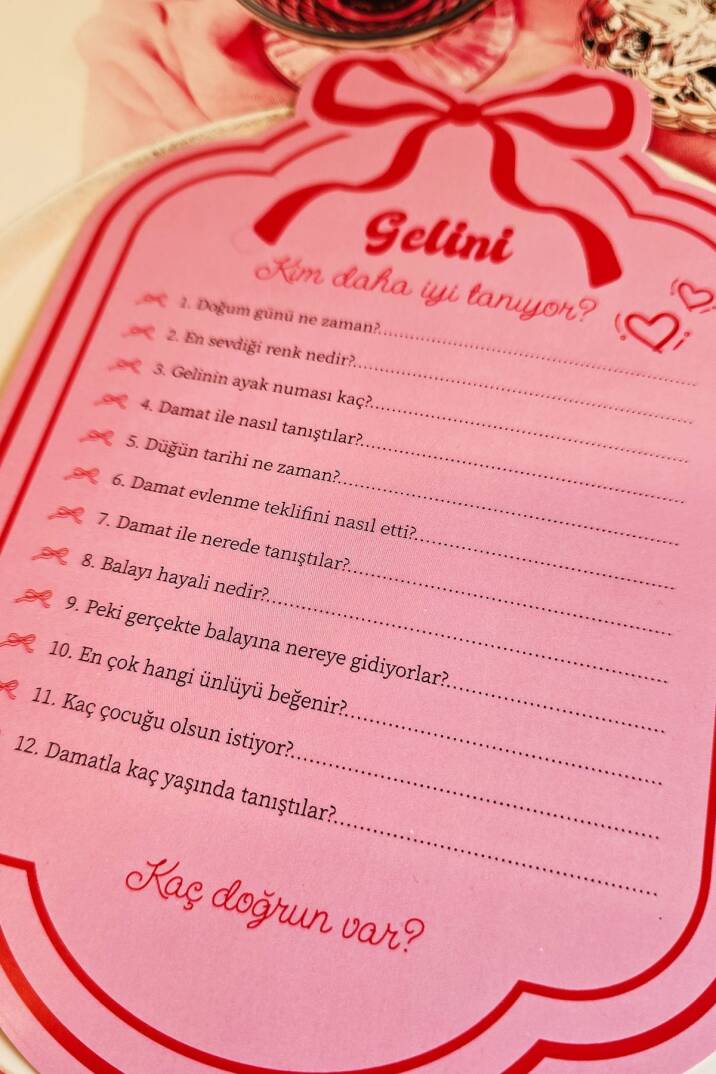 Gelini
Kim daha iyi tanıyor?
1. Doğum günü ne zaman?
2. En sevdiği renk nedir?
3. Gelinin ayak numası kaç?
4. Damat ile nasıl tanıştılar?
5. Düğün tarihi ne zaman?
6. Damat evlenme teklifini nasıl etti?
7. Damat ile nerede tanıştılar?
8. Balayı hayali nedir?
9. Peki gerçekte balayına nereye gidiyorlar?
10. En çok hangi ünlüyü beğenir?
11. Kaç çocuğu olsun istiyor?
12. Damatla kaç yaşında tanıştılar?
Kaç doğrun var?